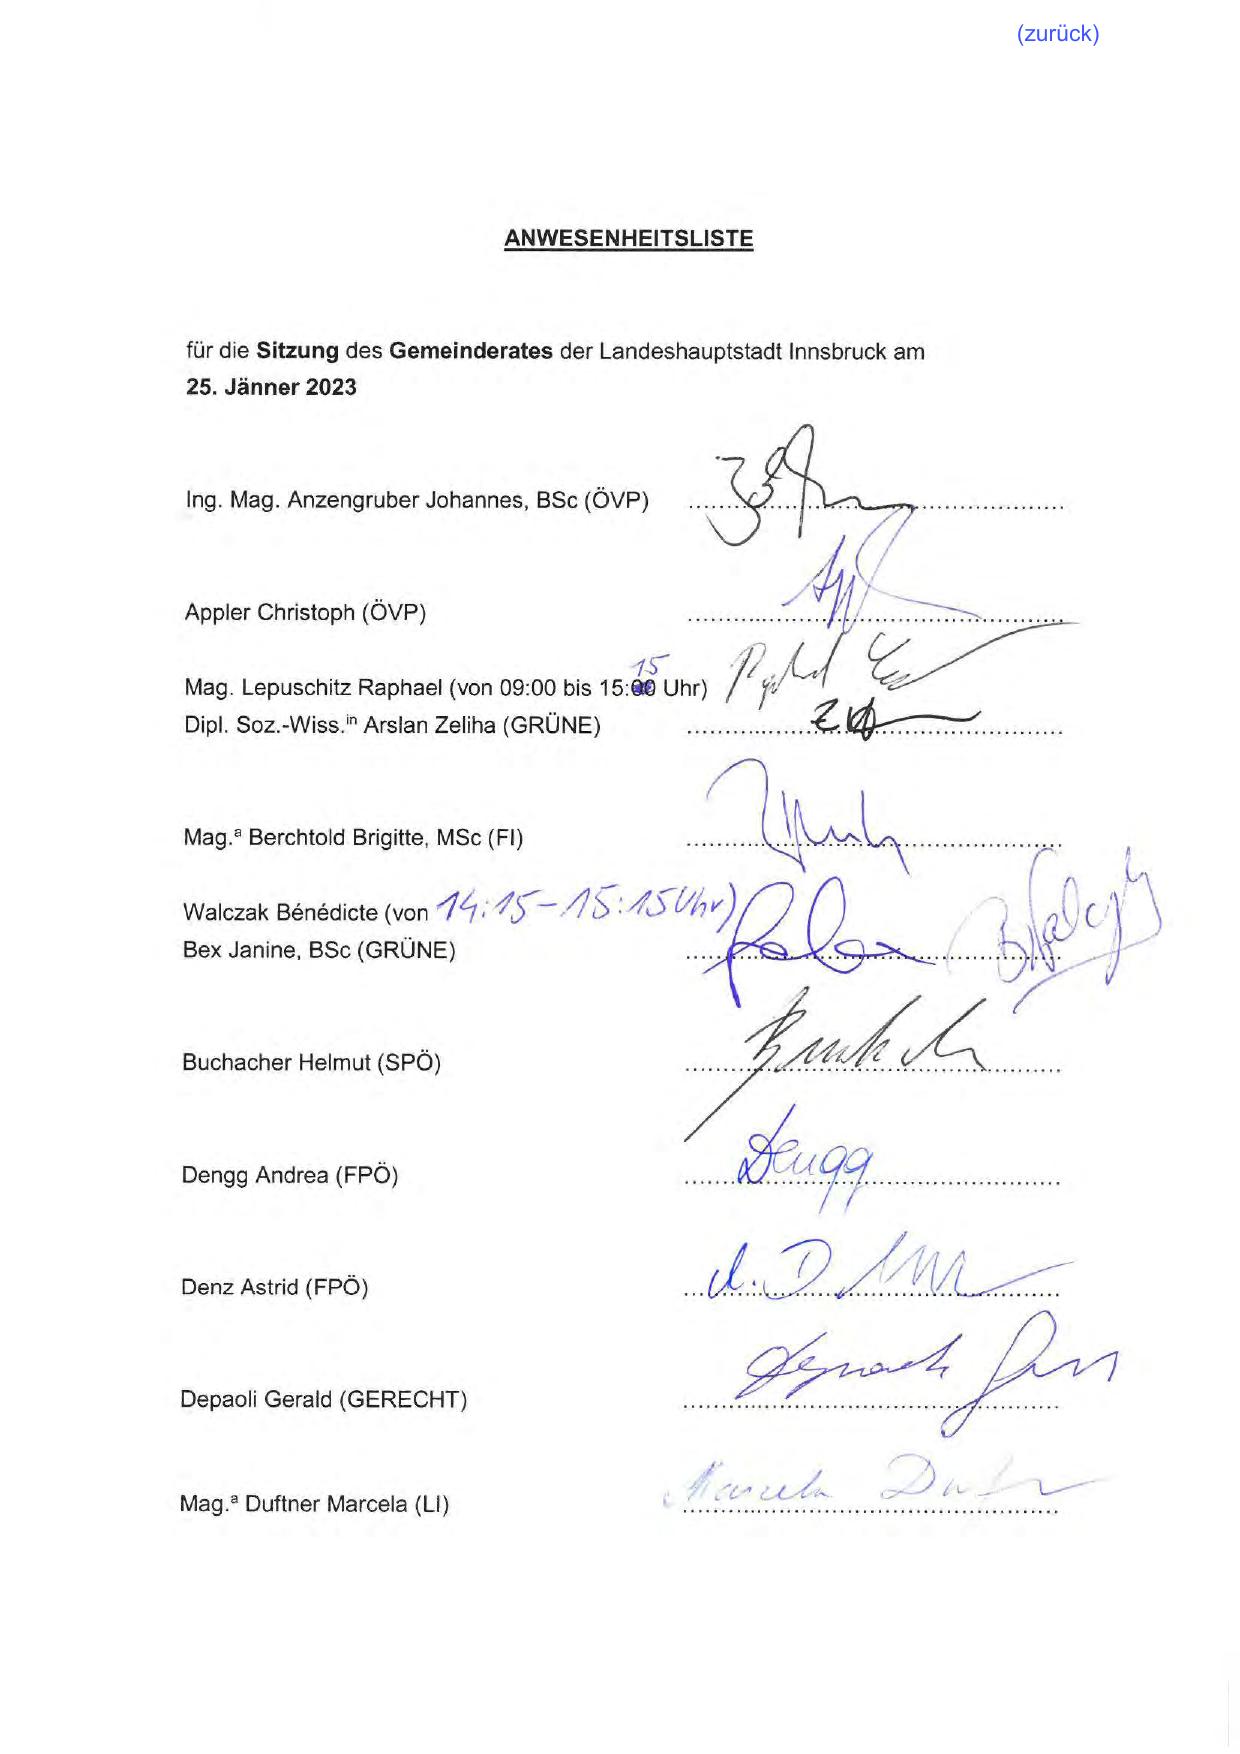 (zurück)
ANWESENHEITSLISTE
für die Sitzung des Gemeinderates der Landeshauptstadt Innsbruck am
25. Jänner 2023
Ing. Mag. Anzengruber Johannes, BSc (ÖVP)
Appler Christoph (ÖVP)
15
Mag. Lepuschitz Raphael (von 09:00 bis 15:00 Uhr)
Dipl. Soz.-Wiss.in Arslan Zeliha (GRÜNE)
Mag.a Berchtold Brigitte, MSc (FI)
Walczak Bénédicte (von 14:15 - 15:15 Uhr)
Bex Janine, BSc (GRÜNE) B Walczak
Buchacher Helmut (SPÖ)
Dengg Andrea (FPÖ) Dengg
Denz Astrid (FPÖ)
Depaoli Gerald (GERECHT)
Mag.a Duftner Marcela (LI) Marcela